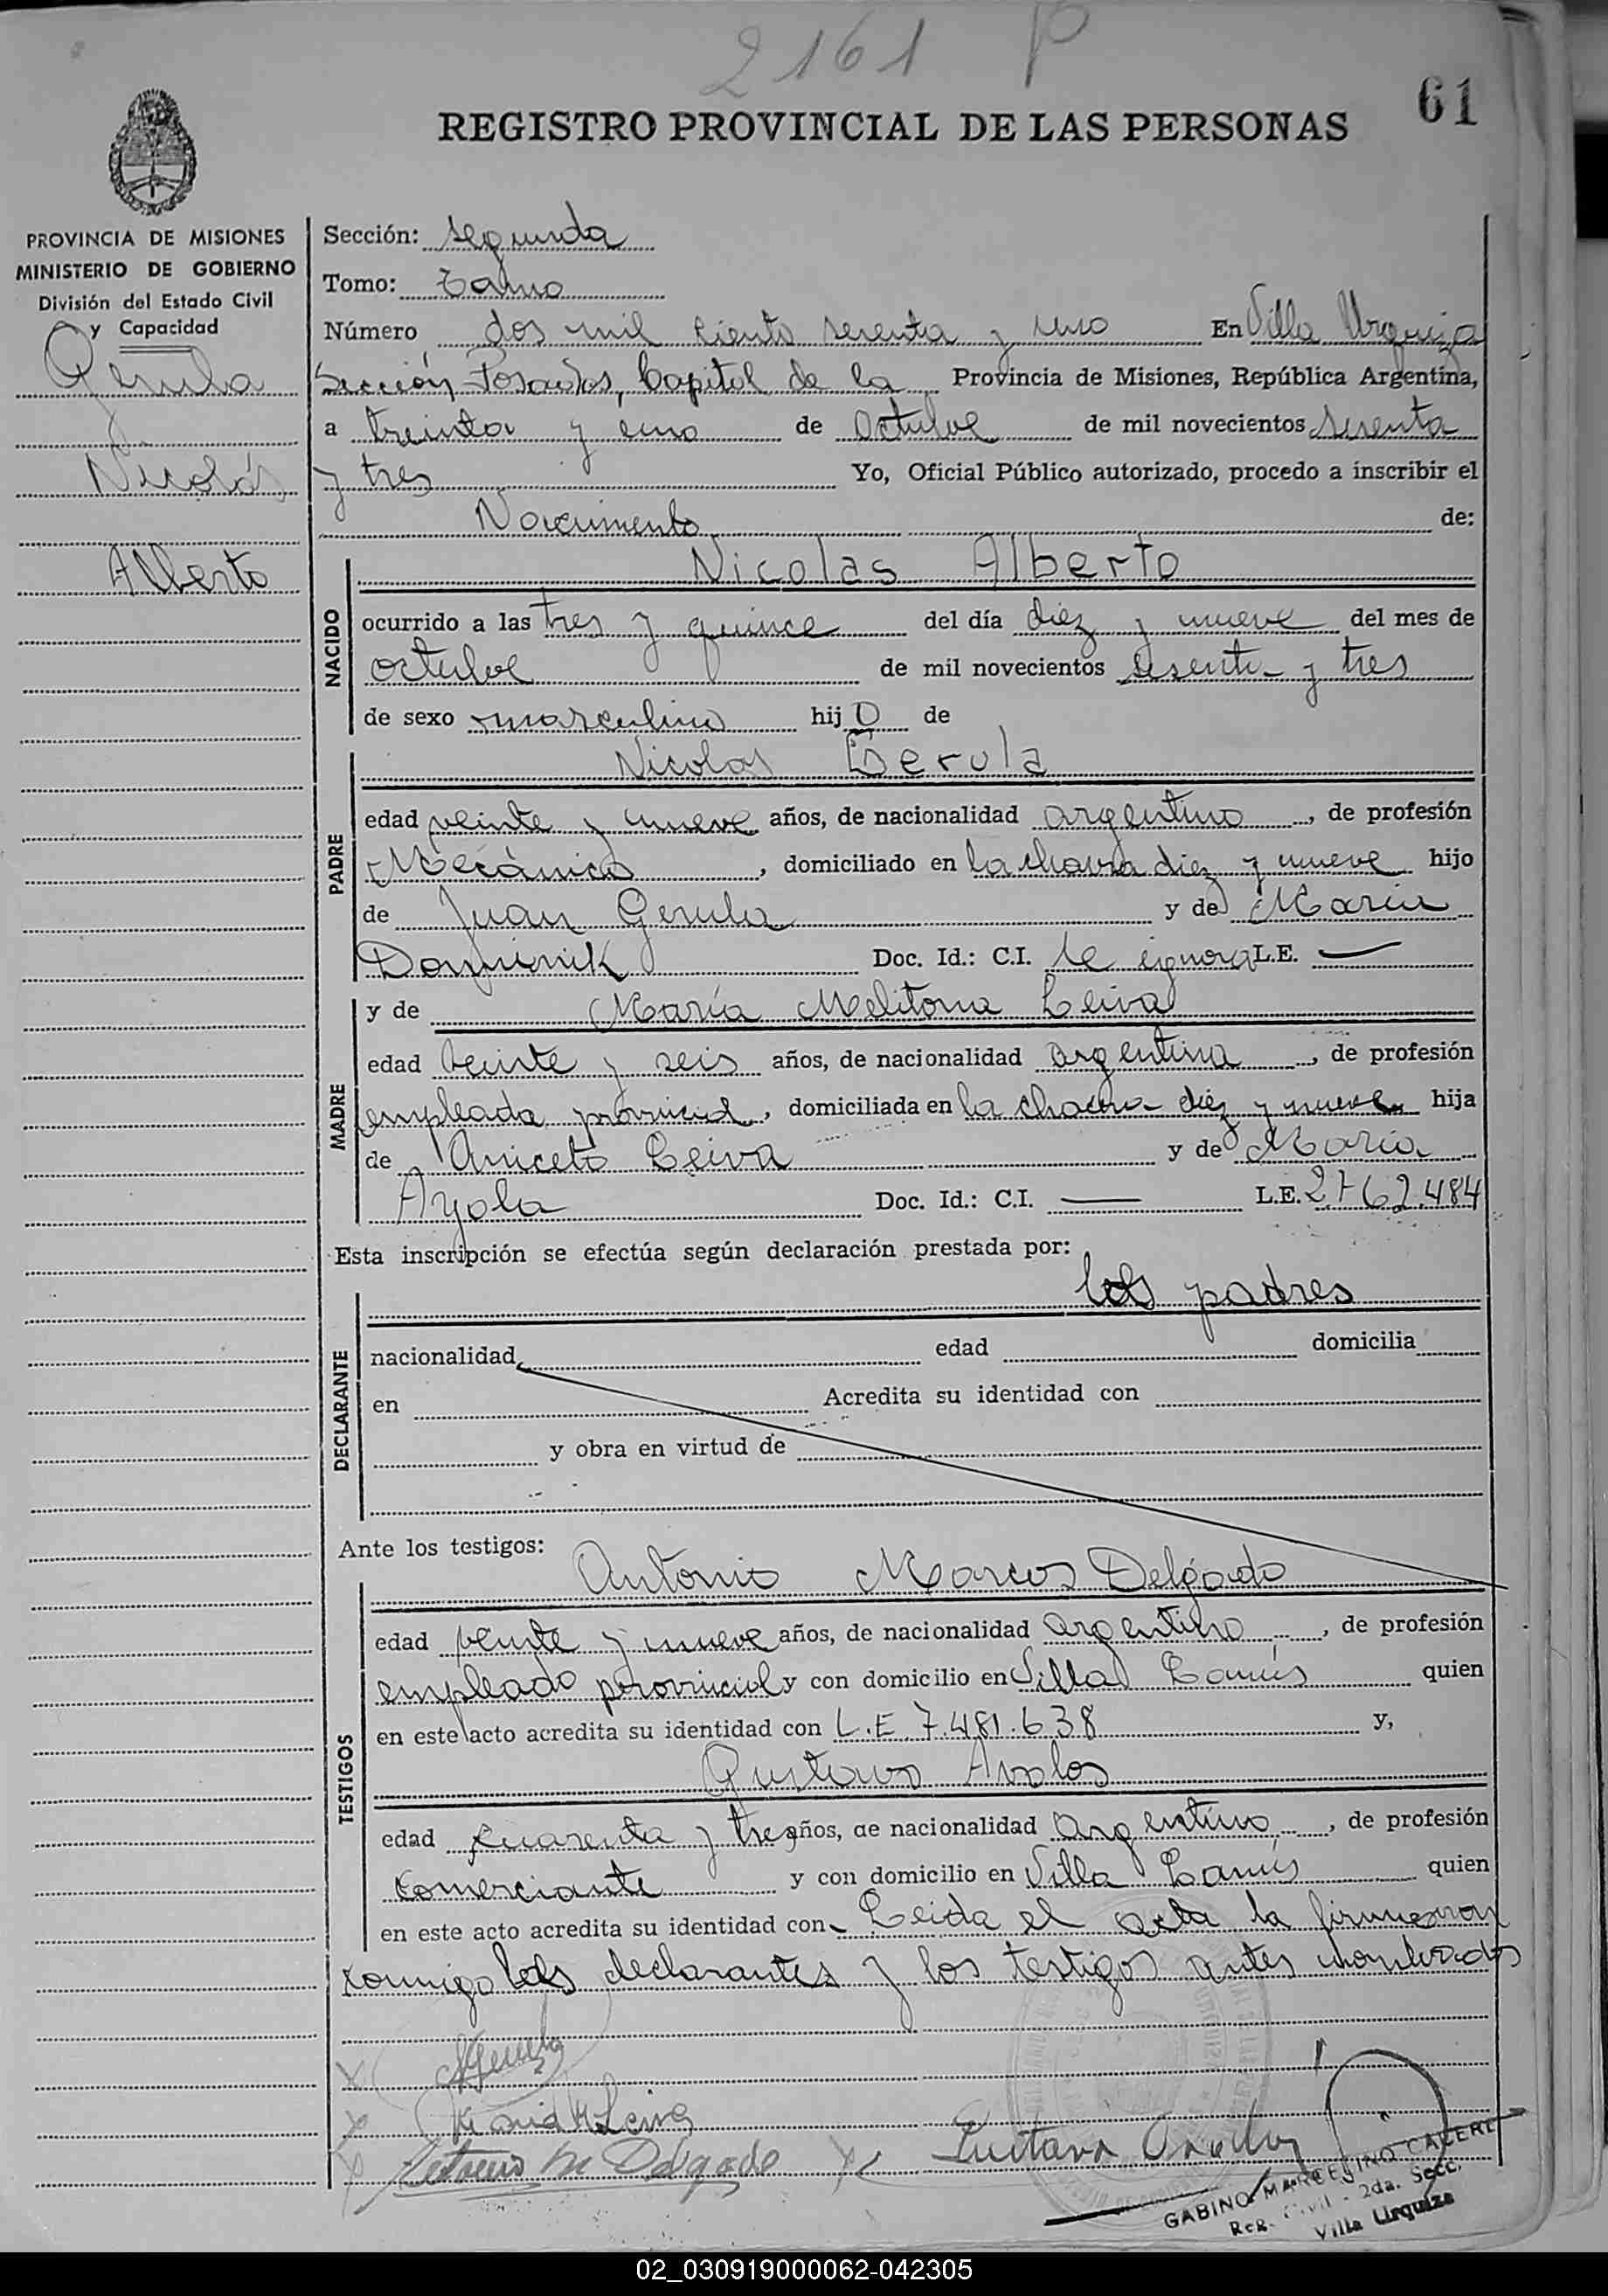 2161 P
61
REGISTRO PROVINCIAL DE LAS PERSONAS
PROVINCIA DE MISIONES
MINISTERIO DE GOBIERNO
División del Estado Civil
y Capacidad
Gerula
Nicolás
Alberto
Sección: Segunda
Tomo:
Número dos mil ciento sesenta y uno En Villa Urquiza
Sección Posadas, Capital de la Provincia de Misiones, República Argentina,
a treinta y uno de Octubre de mil novecientos sesenta
y tres Yo, Oficial Público autorizado, procedo a inscribir el
Nacimiento de:
NACIDO
Nicolas Alberto
ocurrido a las tres y quince del día diez y nueve del mes de
octubre de mil novecientos sesenta y tres
de sexo masculino hijo de
PADRE
Nicolas Gerula
edad veinte y nueve años, de nacionalidad argentino, de profesión
Mecánico, domiciliado en la chacra diez y nueve hijo
de Juan Gerula y de María
Dominik Doc. Id.: C.I. se ignora L.E. —
MADRE
y de María Melitona Leiva
edad veinte y seis años, de nacionalidad argentina, de profesión
empleada provincial, domiciliada en la chacra diez y nueve hija
de Aniceto Leiva y de María
Ayola Doc. Id.: C.I. — L.E. 2.762.484
Esta inscripción se efectúa según declaración prestada por:
los padres
DECLARANTE
nacionalidad edad domicilia
en Acredita su identidad con
y obra en virtud de
Ante los testigos:
Antonio Marcos Delgado
TESTIGOS
edad veinte y nueve años, de nacionalidad argentino, de profesión
empleado provincial y con domicilio en Villa Lanús quien
en este acto acredita su identidad con L.E. 7.481.638 y,
Gustavo Avalos
edad cuarenta y tres años, de nacionalidad argentino, de profesión
comerciante y con domicilio en Villa Lanús quien
en este acto acredita su identidad con Leida el acta la firmaron
conmigo los declarantes y los testigos antes nombrados
x NGerula
x Maria M Leiva
x Antonio M Delgado x Gustavo Avalos
GABINO MARCELINO CACERE
Reg. Civil - 2da. Secc.
Villa Urquiza
02_030919000062-042305